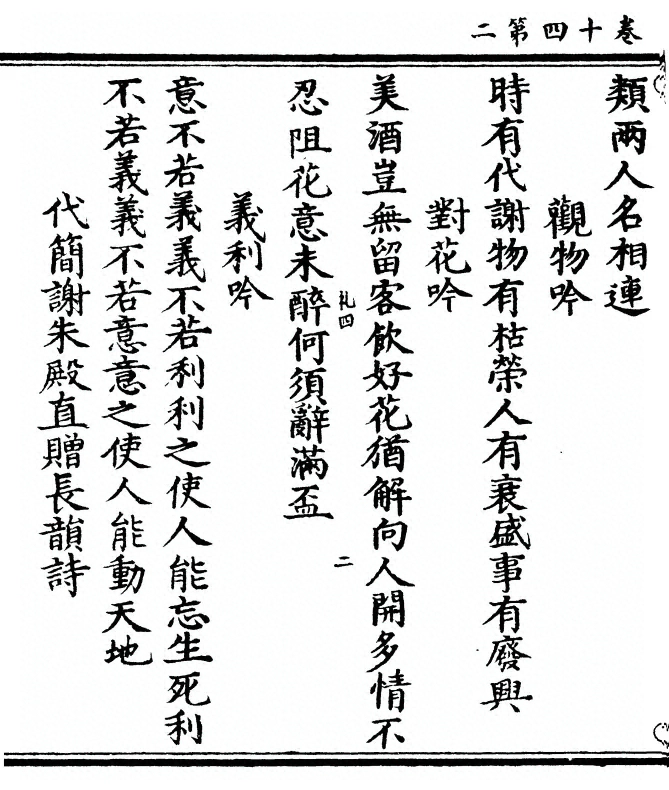 卷十四第二
類兩人名相連
觀物吟
時有代謝物有枯榮人有衰盛事有廢興
對花吟
美酒豈無留客飲好花猶解向人開多情不
礼四 二
忍阻花意未醉何須辭滿盃
義利吟
意不若義義不若利利之使人能忘生死利
不若義義不若意意之使人能動天地
代簡謝朱殿直贈長韻詩